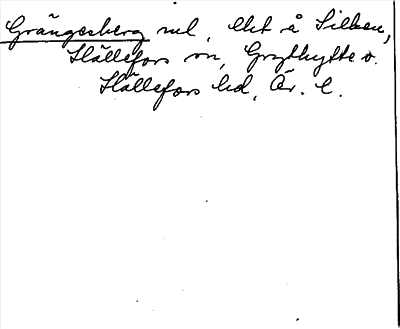 Grängesberg nul, ekt å Silken,
Hällefors sn, Grythytte o.
Hällefors hd, Ör. l.